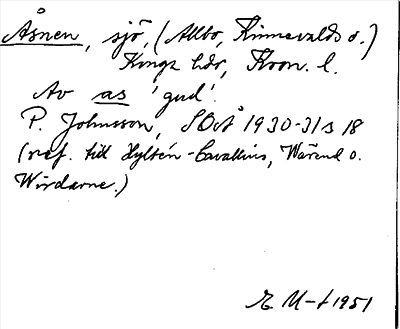 Åsnen, sjö, (Allbo, Kinnevalds o.)
Konga hdr, Kron. l.
Av as 'gud'.
P. Johnsson, SOÅ 1930-31 s 18
(ref. till Hyltén-Cavallius, Wärend o.
Wirdarne.)
1951